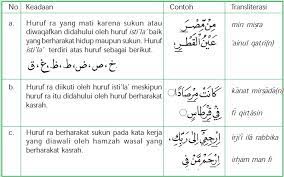 No. Keadaan Contoh Transliterasi
a. Huruf ra yang mati karena sukun atau
diwaqafkan didahului oleh huruf isti'la' baik
yang berharakat hidup maupun sukun. Huruf
isti'la' terdiri atas huruf sebagai berikut.
خ، ص، ض، ط، ظ، غ، ق
مِنْ مِصْرَ
عَيْنُ الْقِطْرِ
min miṣra
'ainul qatri(n)
b. Huruf ra diikuti oleh huruf isti'la' meskipun
huruf ra itu didahului oleh huruf berharakat
kasrah.
كَانَتْ مِرْصَادًا
فِيْ قِرْطَاسٍ
kānat mirṣāda(n)
fī qirṭāsin
c. Huruf ra berharakat sukun pada kata kerja
yang diawali oleh hamzah wasal yang
berharakat kasrah.
اِرْجِعِيْٓ اِلٰى رَبِّكِ
اِرْحَمْ مَنْ فِى
irji'ī ilā rabbika
irḥam man fi